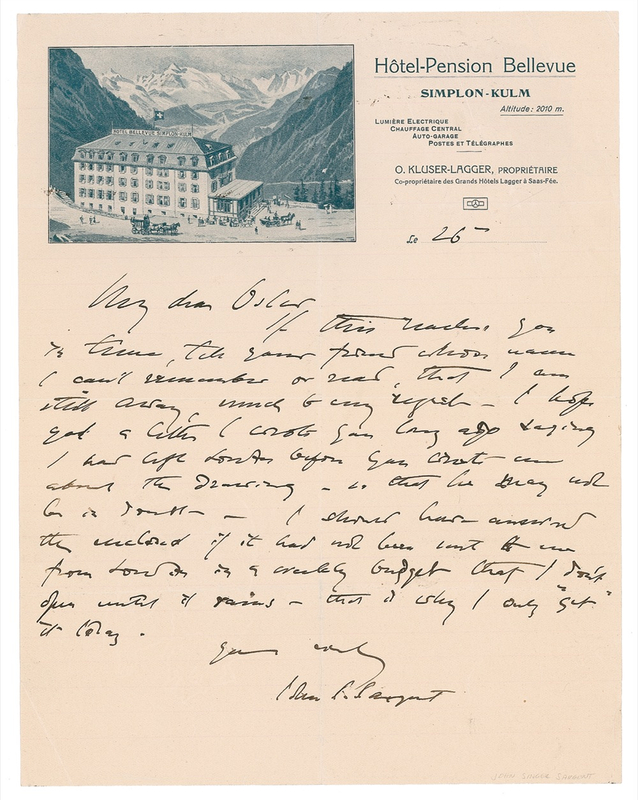 HOTEL BELLEVUE SIMPLON-KULM
Hôtel-Pension Bellevue
SIMPLON-KULM
Altitude: 2010 m.
LUMIÈRE ELECTRIQUE
CHAUFFAGE CENTRAL
AUTO-GARAGE
POSTES ET TÉLÉGRAPHES
O. KLUSER-LAGGER, PROPRIÉTAIRE
Co-propriétaire des Grands Hôtels Lagger à Saas-Fée.
Le 26
My dear Oscar
If this reaches you
in time, tell your friend whose name
I can't remember or read, that I am
still away, much to my regret - I hope
got a letter I wrote you long ago saying
I had left London before you wrote me
about the drawing - so that he may not
be in doubt - I should have answered
the enclosed if it had not been sent to me
from London in a weekly budget that I don't
open until it rains - that is why I only "get"
it today.
Yours
John S. Sargent
JOHN SINGER SARGENT